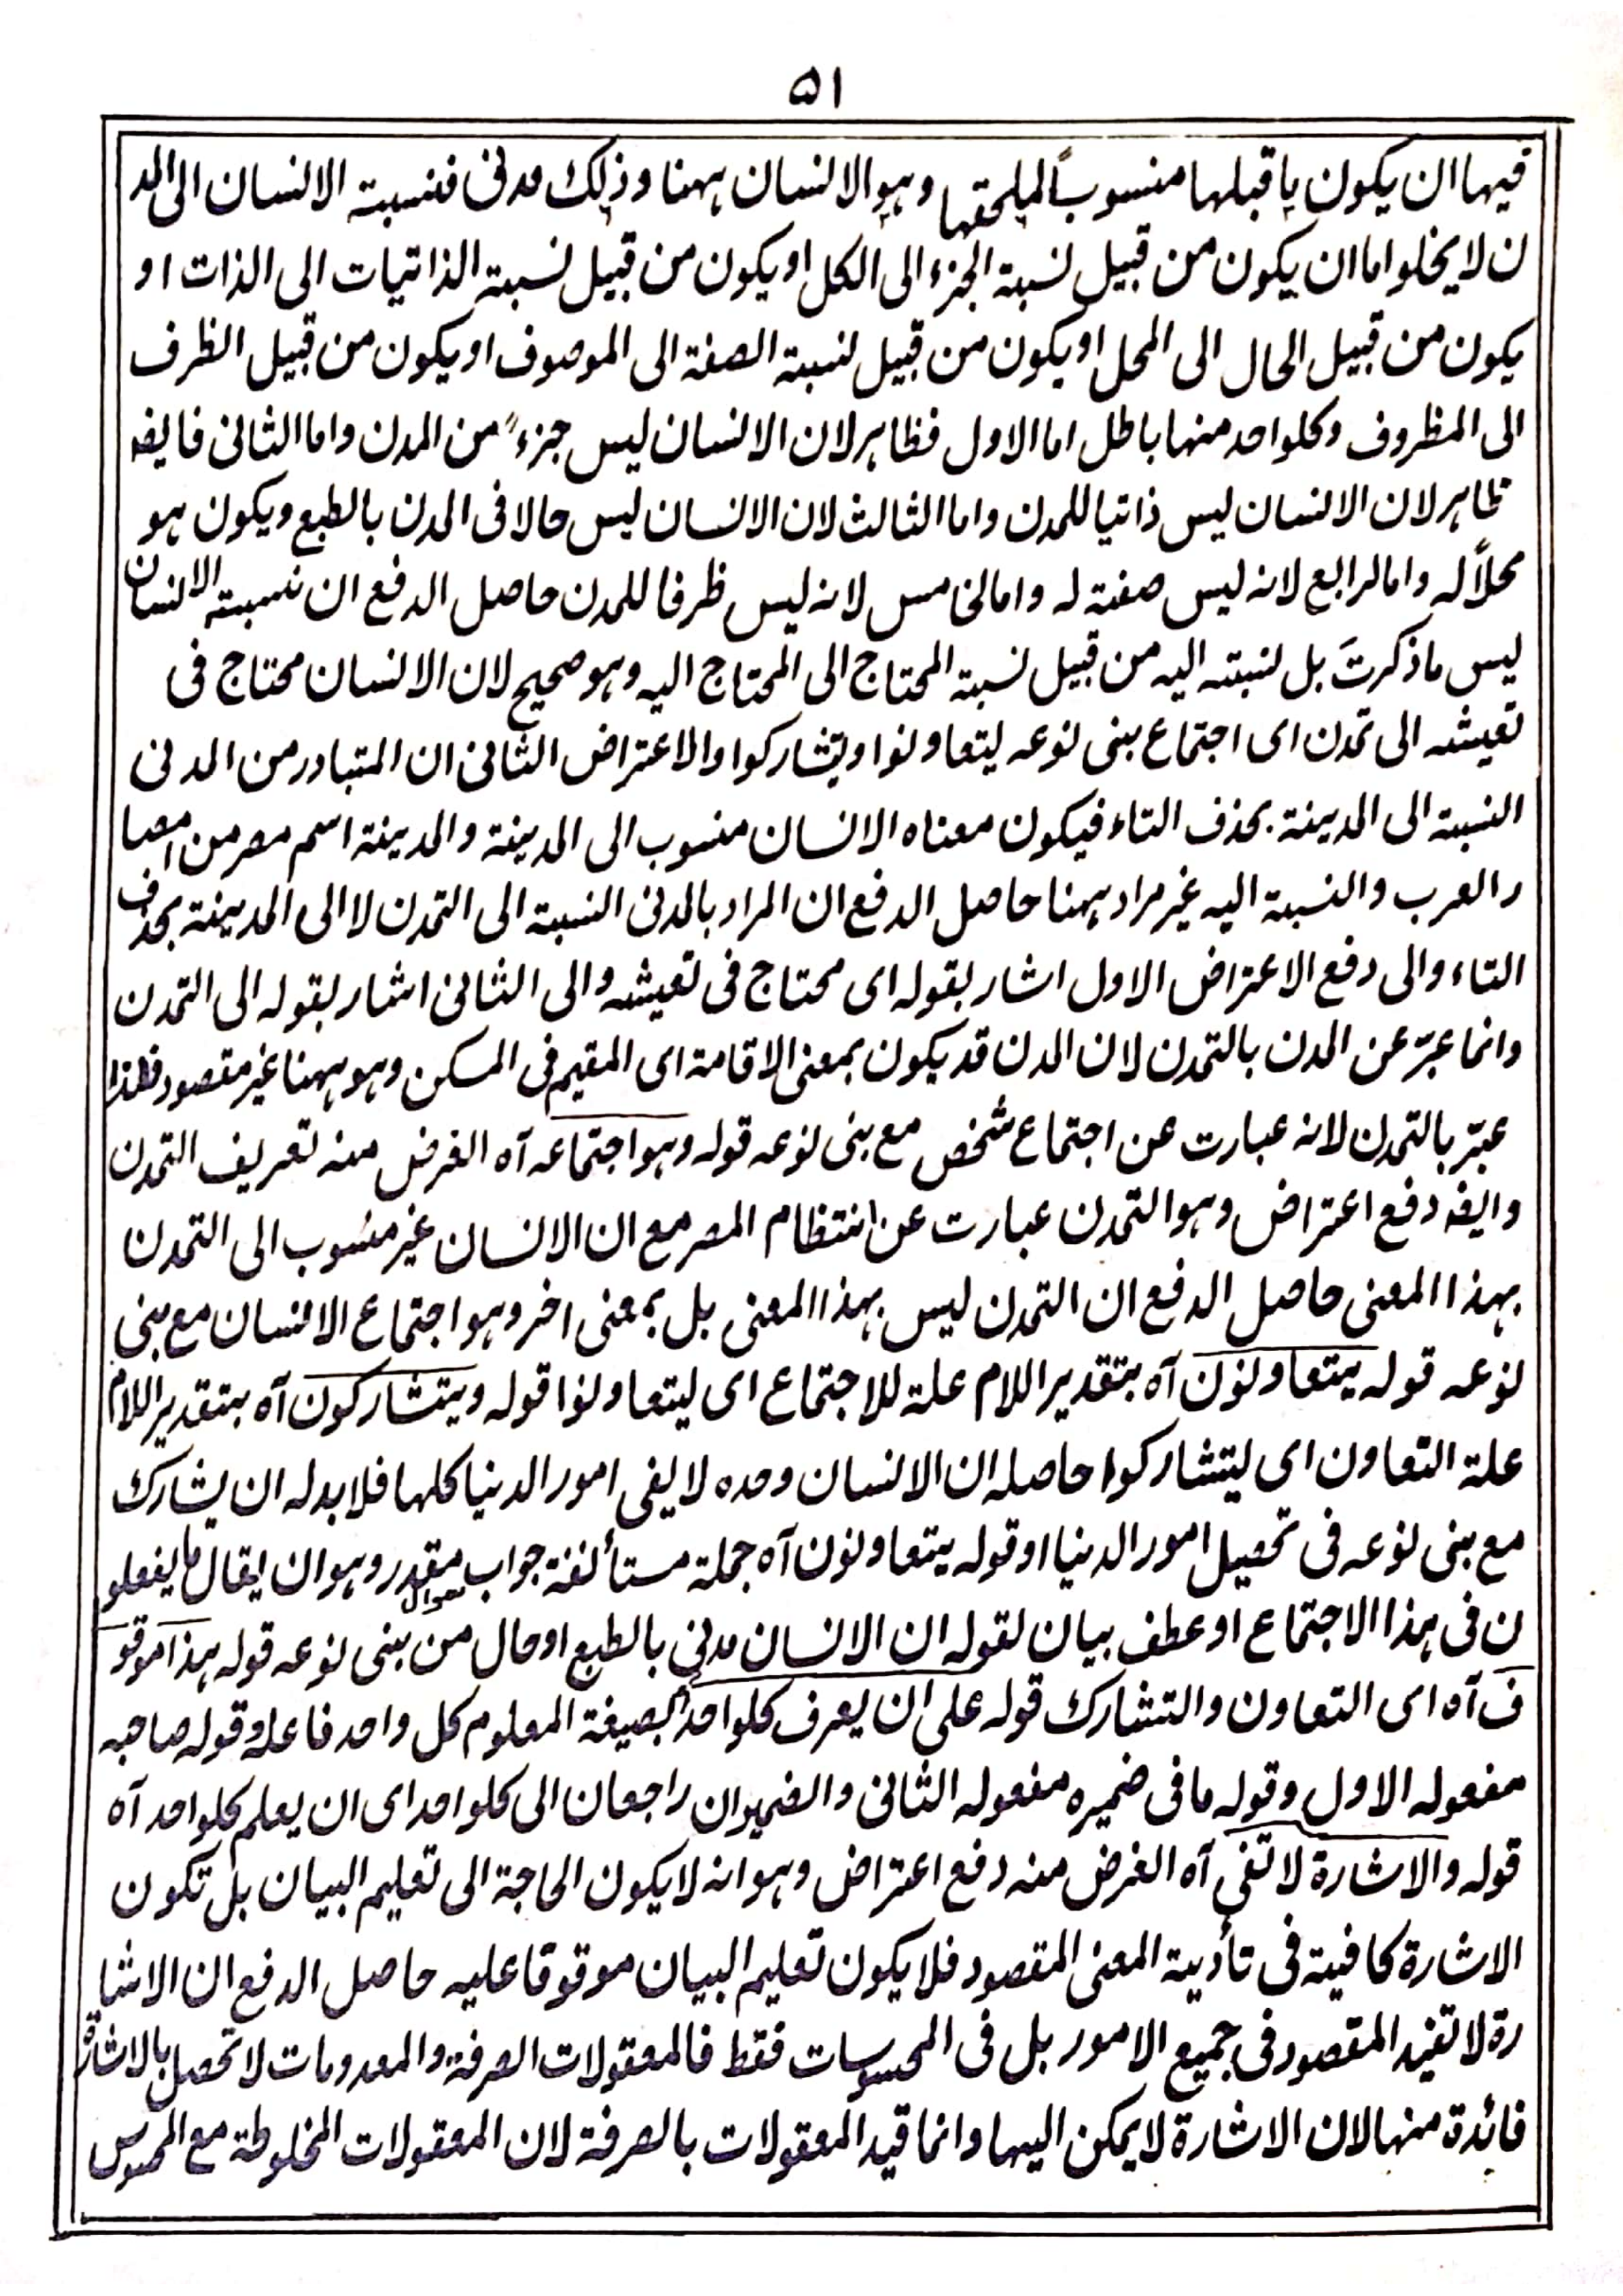 ۵۱
فيها ان يكون ياقبلها منسوباً لملحقها وهو الانسان ههنا وذلك مدنى فنسبة الانسان الى المد
ن لا يخلو اما ان يكون من قبيل نسبة الجزء الى الكل او يكون من قبيل نسبة الذاتيات الى الذات او
يكون من قبيل الحال الى المحل او يكون من قبيل نسبة الصفة الى الموصوف او يكون من قبيل الظرف
الى المظروف وكلواحد منها باطل اما الاول فظاهر لان الانسان ليس جزءً من المدن واما الثانى فايضـ
ظاهر لان الانسان ليس ذاتيا للمدن واما الثالث لان الانسان ليس حالا فى المدن بالطبع ويكون هو
محلاً له واما لرابع لانه ليس صفة له واما لخامس لانه ليس ظرفا للمدن حاصل الدفع ان نسبة الانسان
ليس ما ذكرتَ بل نسبته اليه من قبيل نسبة المحتاج الى المحتاج اليه وهو صحيح لان الانسان محتاج فى
تعيشه الى تمدن اى اجتماع بنى نوعه ليتعاونوا ويتشاركوا والاعتراض الثانى ان المتبادر من المدنى
النسبة الى المدينة بحذف التاء فيكون معناه الانسان منسوب الى المدينة والمدينة اسم مصر من امصا
ر العرب والنسبة اليه غير مراد ههنا حاصل الدفع ان المراد بالمدنى النسبة الى التمدن لا الى المدينة بحذف
التاء والى دفع الاعتراض الاول اشار بقوله اى محتاج فى تعيشه والى الثانى اشار بقوله الى التمدن
وانما عبّر عن المدن بالتمدن لان المدن قد يكون بمعنى الاقامة اى المقيم فى المسكن وهو ههنا غير مقصود فلهذا
عبّر بالتمدن لانه عبارت عن اجتماع شخص مع بنى نوعه قوله وهو اجتماعه آه الغرض منه تعريف التمدن
وايضـ دفع اعتراض وهو التمدن عبارت عن انتظام المصر مع ان الانسان غير منسوب الى التمدن
بهذا المعنى حاصل الدفع ان التمدن ليس بهذا المعنى بل بمعنى اخر وهو اجتماع الانسان مع بنى
نوعه قوله يتعاونون آه بتقدير اللام علة للاجتماع اى ليتعاونوا قوله ويتشاركون آه بتقدير اللام
علة التعاون اى ليتشاركوا حاصله ان الانسان وحده لا يفى امور الدنيا كلها فلا بد له ان يشارك
مع بنى نوعه فى تحصيل امور الدنيا او قوله يتعاونون آه جملة مستأنفة جواب سوال مقدر وهو ان يقال ما يفعلو
ن فى هذا الاجتماع او عطف بيان لقوله ان الانسان مدنى بالطبع او حال من بنى نوعه قوله هذا موقو
ف آه اى التعاون والتشارك قوله على ان يعرف كلواحد بصيغة المعلوم كل واحد فاعله وقوله صاحبه
مفعوله الاول وقوله ما فى ضميره مفعوله الثانى والضميران راجعان الى كلواحد اى ان يعلم كلواحد آه
قوله والاشارة لا تفى آه الغرض منه دفع اعتراض وهو انه لا يكون الحاجة الى تعليم البيان بل تكون
الاشارة كافية فى تأدية المعنى المقصود فلا يكون تعليم البيان موقوفا عليه حاصل الدفع ان الاشا
رة لا تفيد المقصود فى جميع الامور بل فى المحسوسات فقط فالمعقولات الصرفة والمعدومات لا تحصل بالاشارة
فائدة منها لان الاشارة لا يمكن اليها وانما قيد المعقولات بالصرفة لان المعقولات المخلوطة مع المحسوس